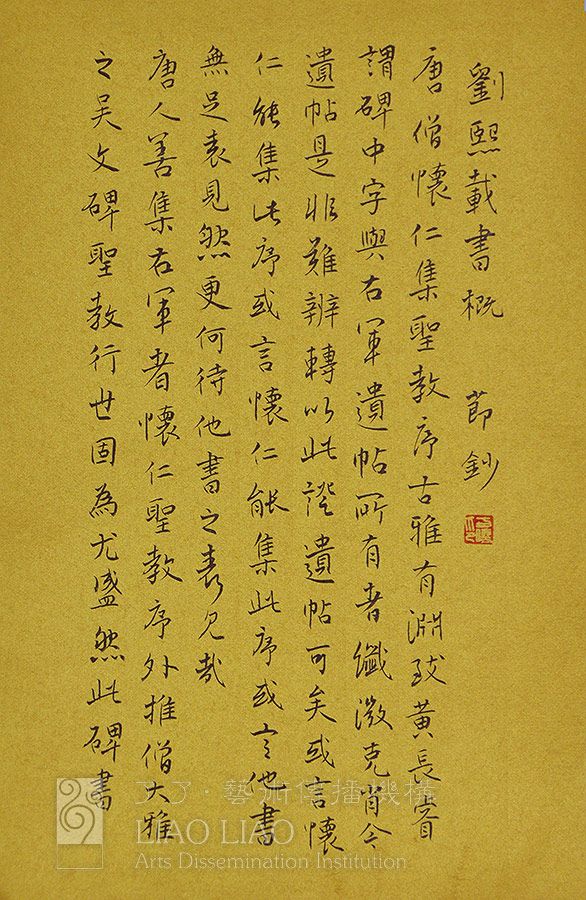 劉熙載書概 節鈔
唐僧懷仁集聖教序古雅有淵致黃長睿
謂碑中字與右軍遺帖所有者纖微克肖今
遺帖是非難辨轉以此證遺帖可矣或言懷
仁能集此序或言懷仁能集此序或言他書
無足表見然更何待他書之表見哉
唐人善集右軍者懷仁聖教序外推僧大雅
之吳文碑聖教行世固為尤盛然此碑書
了了·藝術傳播機構
LIAO LIAO
Arts Dissemination Institution